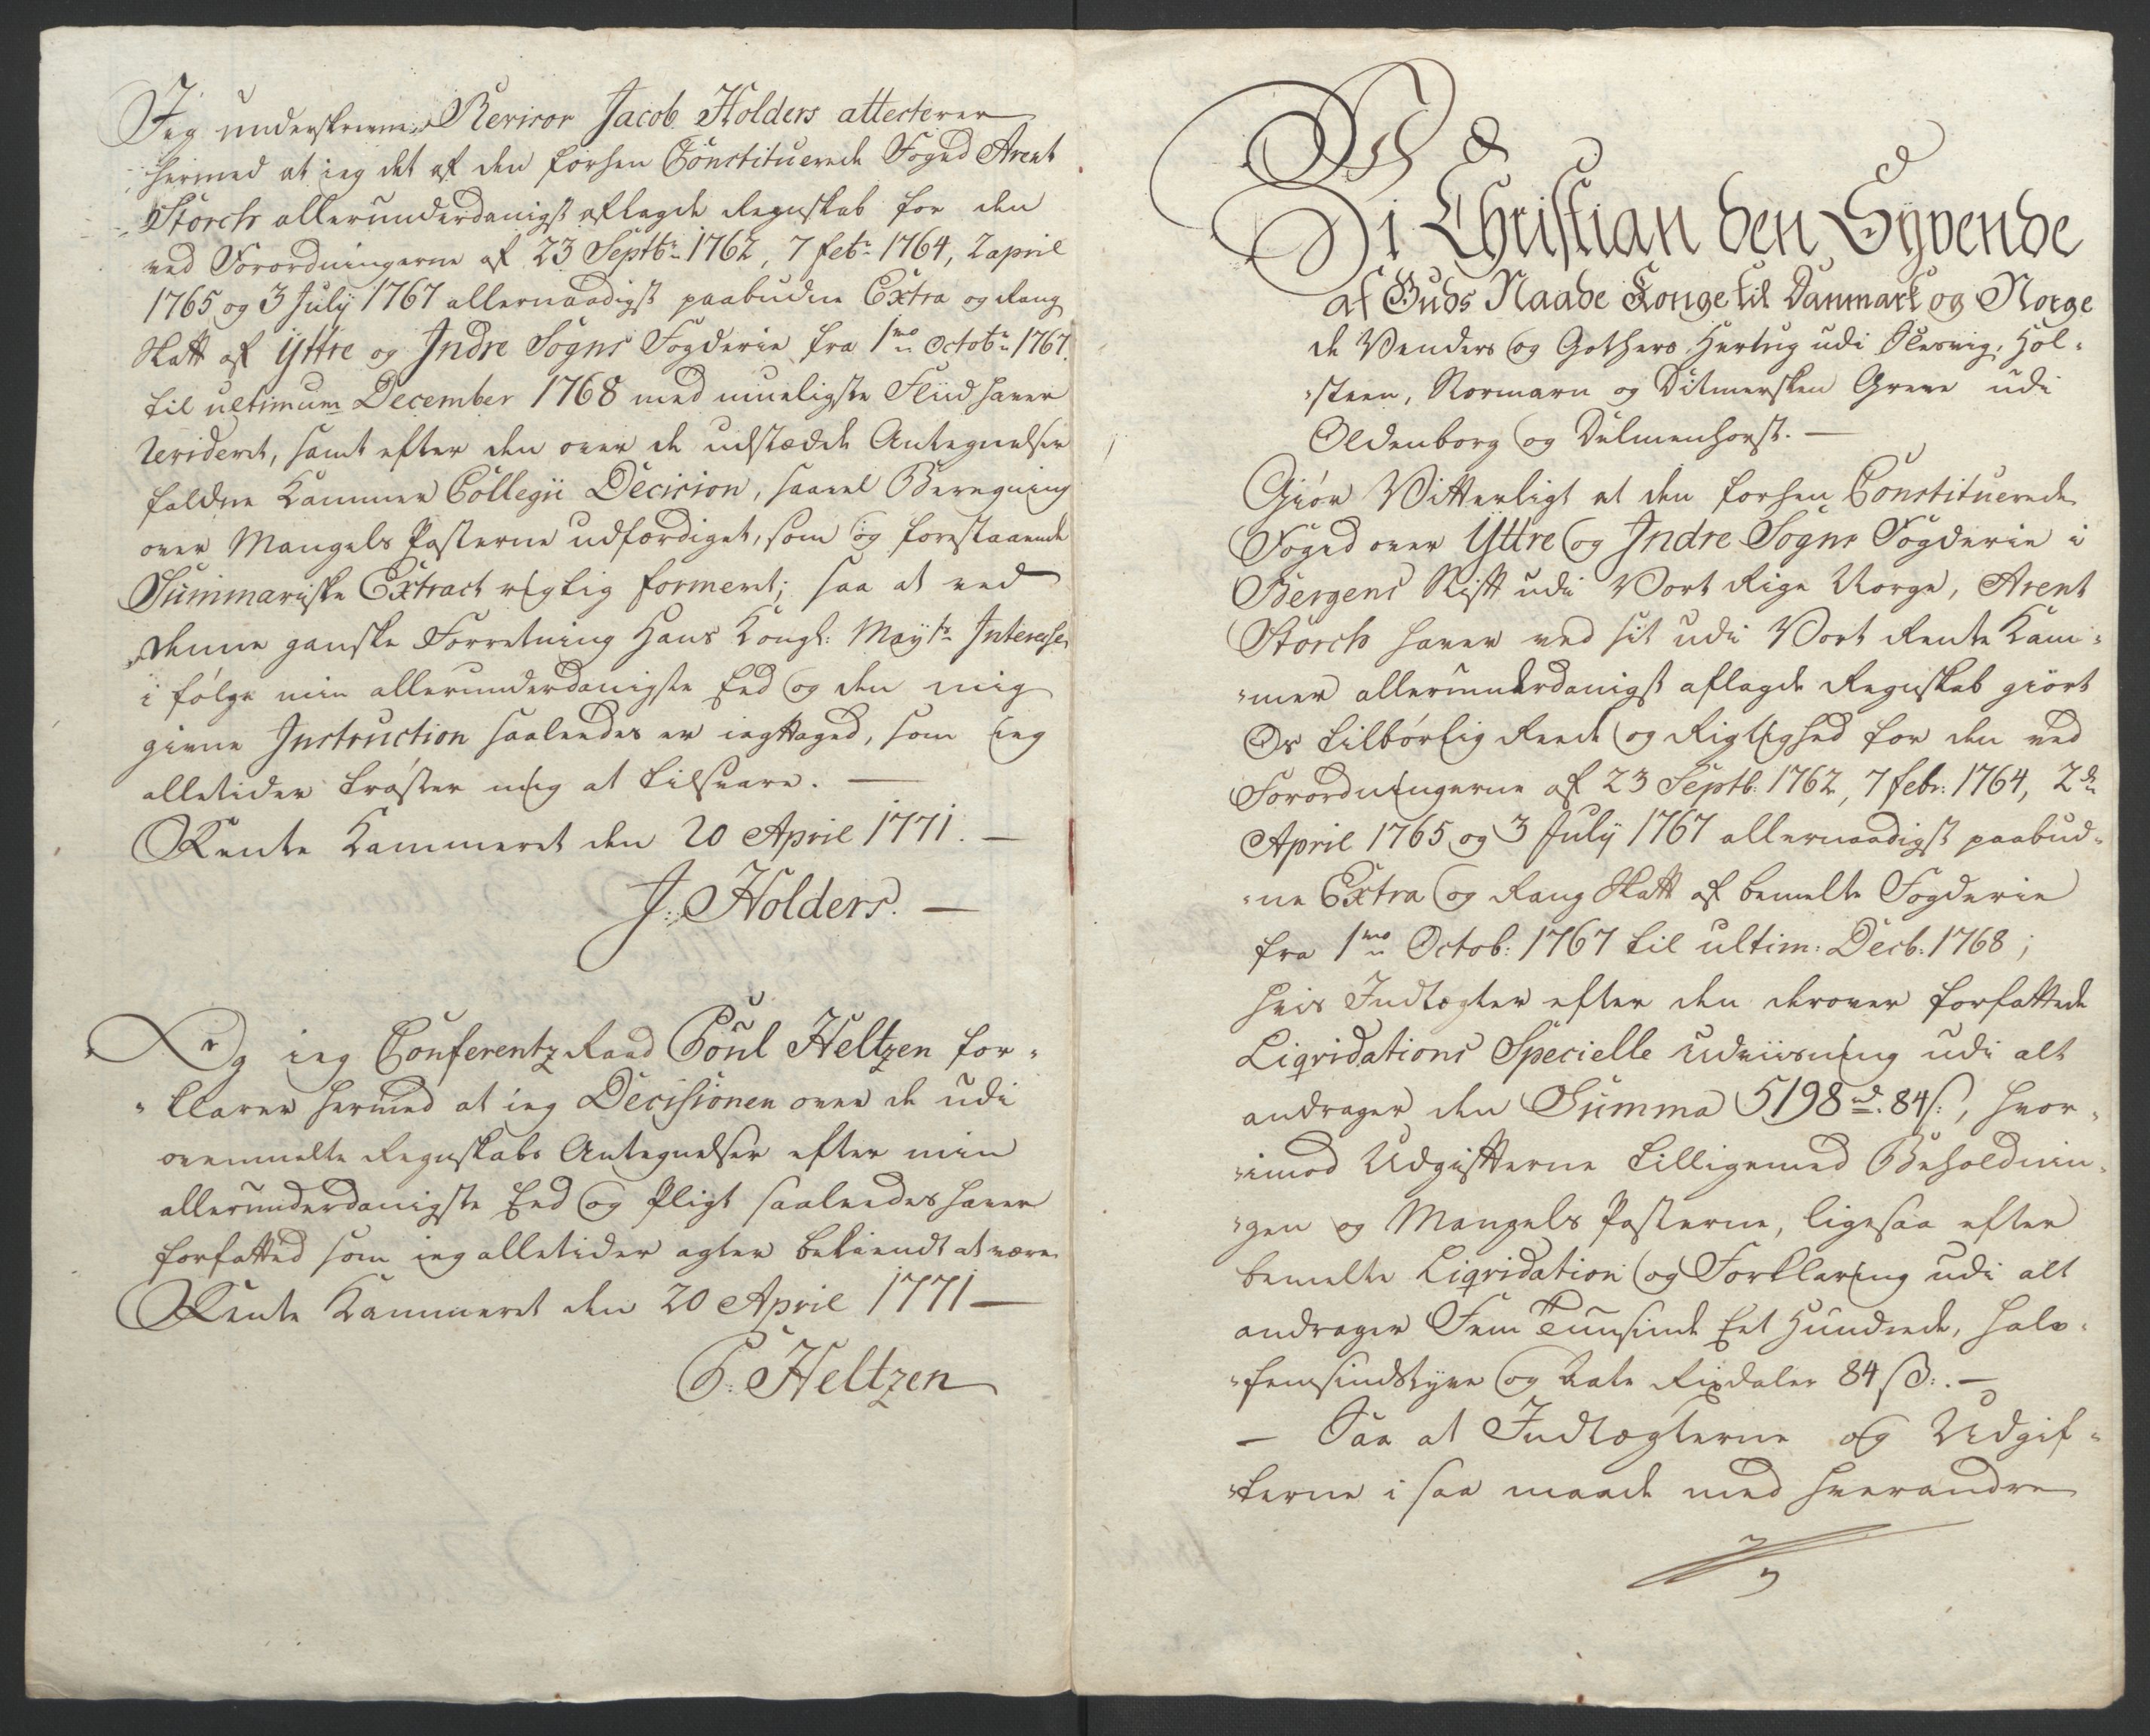 Jeg underskrevne Revisor Jacob Holders attesterer
hermed at ieg det af den forhen Constituerede Foged Arent
Storch allerunderdanigst aflagde Regnskab for den
ved Forordningerne af 23 Septbr: 1762, 7 febr: 1764, 2 april
1765 og 3 July 1767 allernaadigst paabudne Extra og Rang
Skatt af Yttre og Indre Sogns Fogderie fra 1mo Octobr: 1767.
til ultimum December 1768 med mueligste Fliid haver
revideret, samt efter den over de udstædde Antegnelser
faldne Kammer Collegii Decision, saavel Beregning
over Mangels Posterne udfærdiget, som og forestaaende
Summariske Extract rigtig formeret; saa at ved
denne ganske Forretning Hans Kongl: Mayts: Interesse
i følge min allerunderdanigste Eed og den mig
givne Instruction saaledes er iagttaged, som ieg
alletider trøster mig at tilsvare. —
Rente Kammeret den 20 April 1771. —
J: Holders. —
Og ieg Conferentz Raad Poul Heltzen for-
-klarer hermed at ieg Decisionen over de udi
ovenmelte Regnskabs Antegnelser efter min
allerunderdanigste Eed og Pligt saaleedes haver
forfatted som ieg alletider agter bekiendt at være
Rente Kammeret den 20 April 1771 —
P: Heltzen
Vi Christian den Syvende
af Guds Naade Konge til Danmark og Norge
de Venders og Gothers, Hertug udi Slesvig, Hol-
-steen, Stormarn og Ditmersken Greve udi
Oldenborg og Delmenhorst. —
Giør Vitterligt at den forhen Constituerede
Foged over Yttre og Indre Sogns Fogderie i
Bergens Stift udi Vort Rige Norge, Arent
Storch haver ved sit udi Vort Rente Kam-
-mer allerunderdanigst aflagde Regnskab giort
Os tilbørlig Reede og Rigtighed for den ved
Forordningerne af 23 Septb: 1762, 7 febr: 1764, 2de
April 1765 og 3 July 1767 allernaadigst paabud-
-ne Extra og Rang Skatt af bemelte Fogderie
fra 1mo Octob: 1767 til ultim: Decb: 1768;
hvis Indtægter efter den derover forfattede
Liqvidations Specielle Udviisning udi alt
andrager den Summa 5198 rd. 84 s:, hvor-
-imod Udgifterne tilligemed Beholdnin-
-gen og Mangels Posterne, ligesaa efter
bemelte Liqvidation og Forklaring udi alt
andrager Fem Tuusinde Eet Hundrede, halv-
-femsindstyve og Aate Rixdaler 84 ß:. —
— Saa at Indtægterne og Udgif-
-terne i saa maade med hverandre